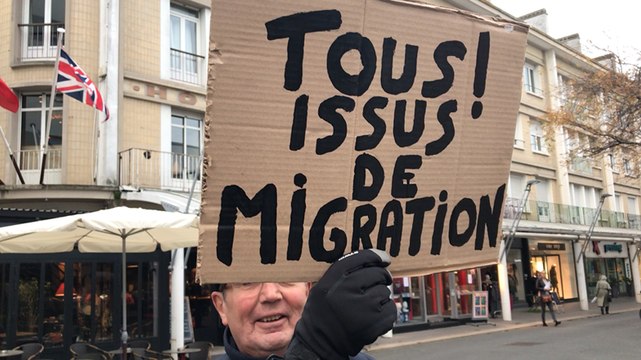 TOUS!
ISSUS
DE
MiGRATiON